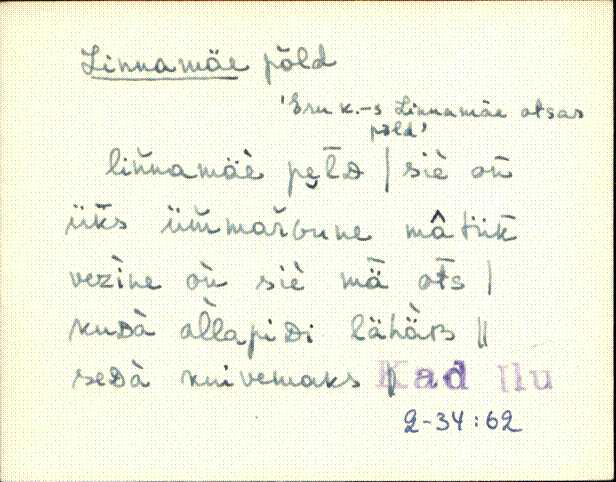 Linnamäe põld
'Eru k.-s Linnamäe otsas
põld'
lin̄namäè̮ pe̮l̄D | siè on̄
ük̄s üm̄mar̆Gune mâtük̄
vezìne on̆ siè mā ot̄s |
kuDà al̆lapiDi lähäBs ||
seDà kuivemaks |
Kad Ilu
2-34:62